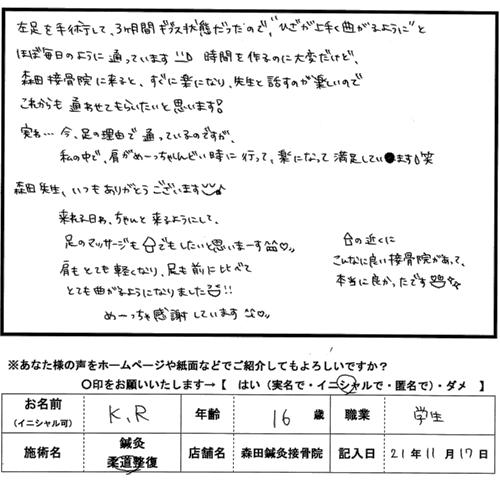 左足を手術して、3ヶ月間ギプス状態だったので、"ひざが上手く曲がるように"と
ほぼ毎日のように通っています 時間を作るのに大変だけど、
森田接骨院に来ると、すぐに楽になり、先生と話すのが楽しいので
これからも通わせてもらいたいと思います!
実わ…今、足の理由で通っているのですが、
私の中で、肩がめーっちゃしんどい時に行って、楽になって満足しています♪笑
森田先生、いつもありがとうございます♪
来れる日わ、ちゃんと来るようにして、
足のマッサージも家でもしたいと思いまーす♡,,
肩もとても軽くなり、足も前に比べて
とても曲がるようになりました!!
めーっちゃ感謝しています♡,,
家の近くに
こんなに良い接骨院があって、
本当に良かったです☆
※あなた様の声をホームページや紙面などでご紹介してもよろしいですか?
〇印をお願いいたします→【 はい(実名で・イニシャルで・匿名で)・ダメ 】
お名前 (イニシャル可) K、R 年齢 16歳 職業 学生
施術名 鍼灸 柔道整復 店舗名 森田鍼灸接骨院 記入日 21年11月17日